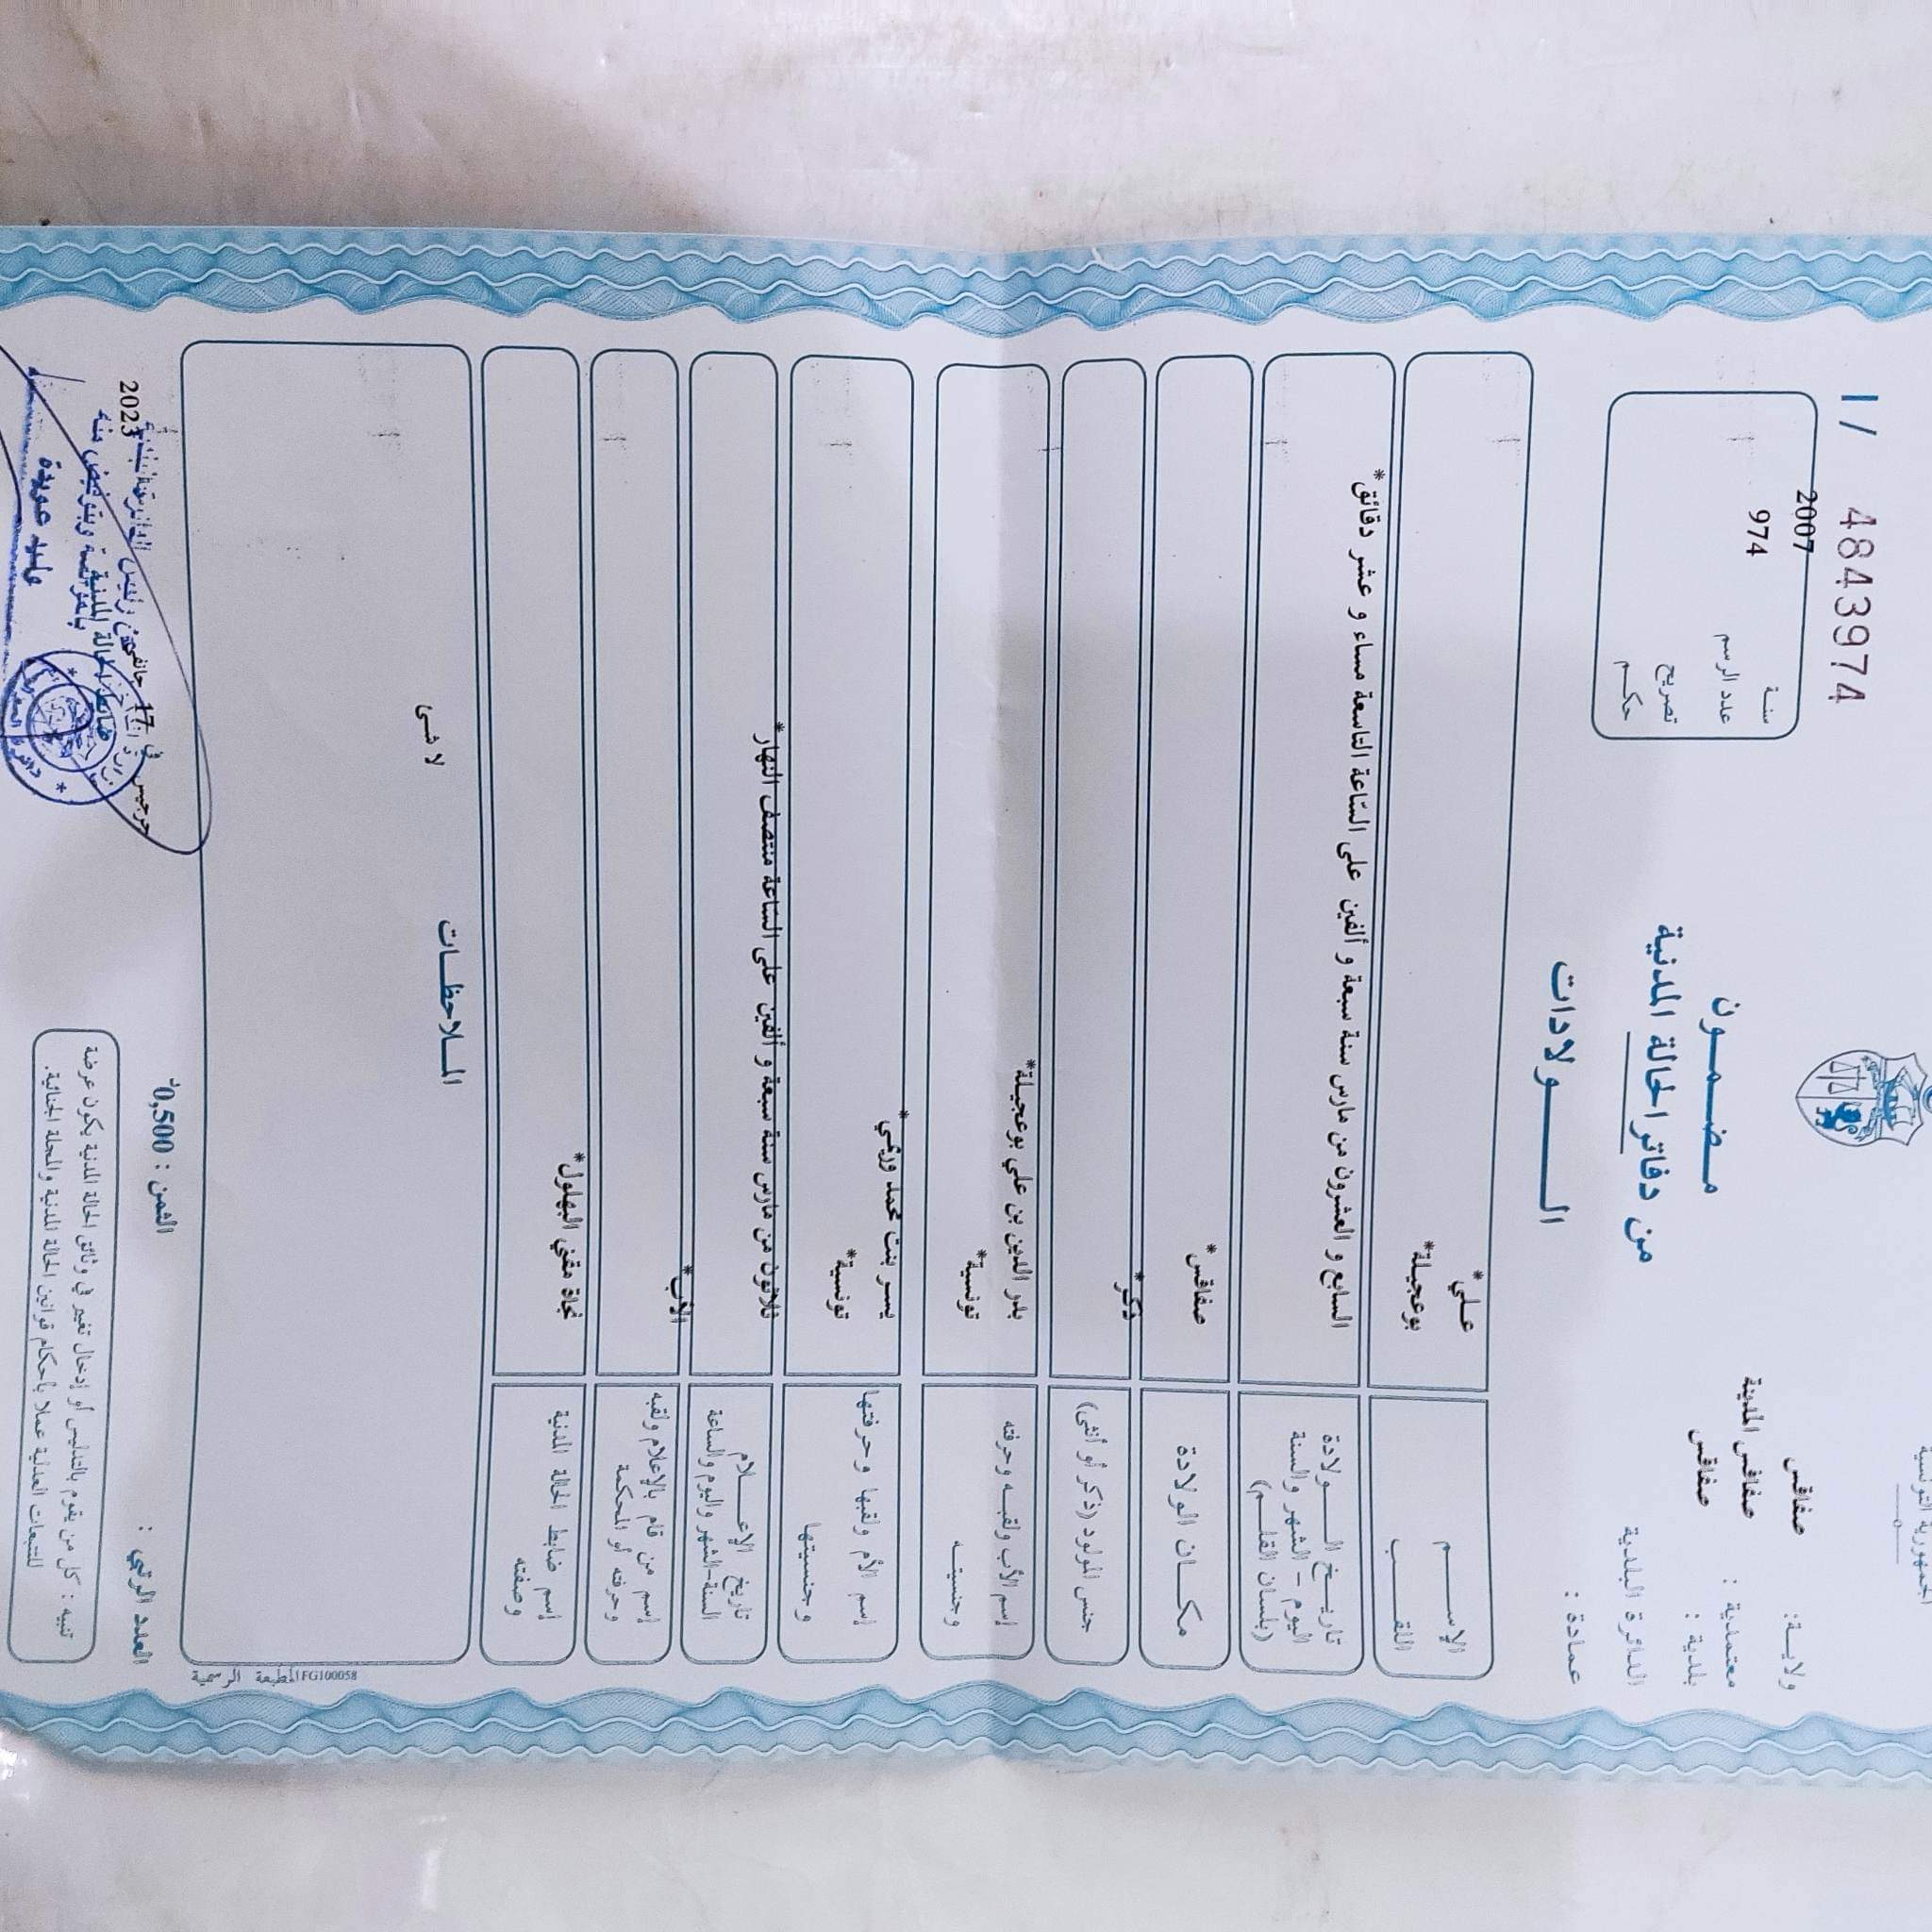 الجمهورية التونسية
I / 4843974
ولايـة: صفاقس
معتمدية : صفاقس المدينة
بلدية : صفاقس
الدائرة البلدية
عمادة :
سنة 2007
عدد الرسم 974
تصريح
حكم
مـضـمـون
من دفاتر الحالة المدنية
الـــولادات
الإســم علي*
اللقــب بوعجيلة*
تاريـخ الــولادة
اليوم - الشهر والسنة
(بلسان القلـم)
السابع و العشرون من مارس سنة سبعة و ألفين على السّاعة التاسعة مساء و عشر دقائق*
مكـان الولادة صفاقس*
جنس المولود (ذكر أو أنثى) ذكر*
إسم الأب ولقبـه وحرفته بدر الدين بن علي بوعجيلة*
وجنسيتـه تونسية*
إسم الأم ولقبها وحرفتها يسر بنت محمد وريمي*
وجنسيتها تونسية*
تاريخ الإعـلام
السنة-الشهر واليوم والساعة
ثلاثون من مارس سنة سبعة و ألفين على السّاعة منتصف النهار*
إسم من قام بالإعلام ولقبه
وحرفته أو المحكمة
الأب*
إسم ضابط الحالة المدنية
وصفته
نجاة مقني البهلول*
المـلاحظـات
لا شىء
المطبعة الرسمية IFG100058
جرجيس في 17 جانفي 2023
ضابط الحالة المدنية
وليد عويدة
العدد الرتبي :
الثمن : 0,500د
تنبيه : كل من يقوم بالتدليس أو إدخال تغيير في وثائق الحالة المدنية يكون عرضة
للتتبعات العدلية عملا بأحكام قوانين الحالة المدنية والمجلة الجنائية.